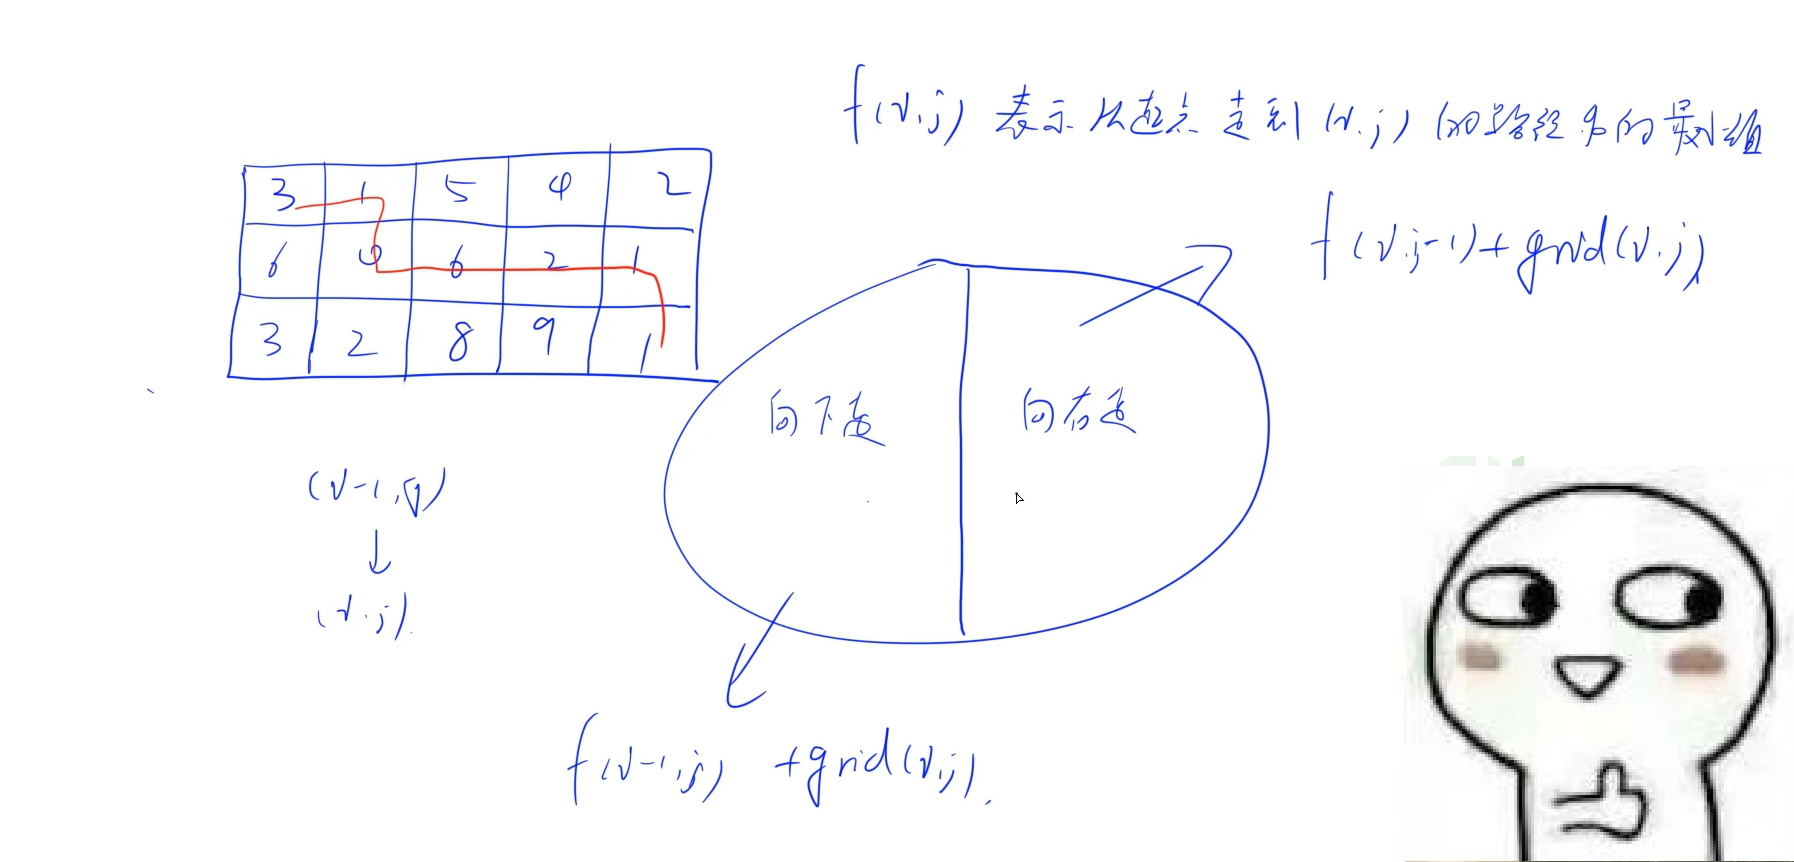 f(i,j) 表示从起点走到(i,j)的路径中的最小值
3 1 5 4 2
6 0 6 2 1
3 2 8 9 1
f(i,j-1)+grid(i,j)
向下走 向右走
(i-1,j)
↓
(i,j).
f(i-1,j) +grid(i,j).